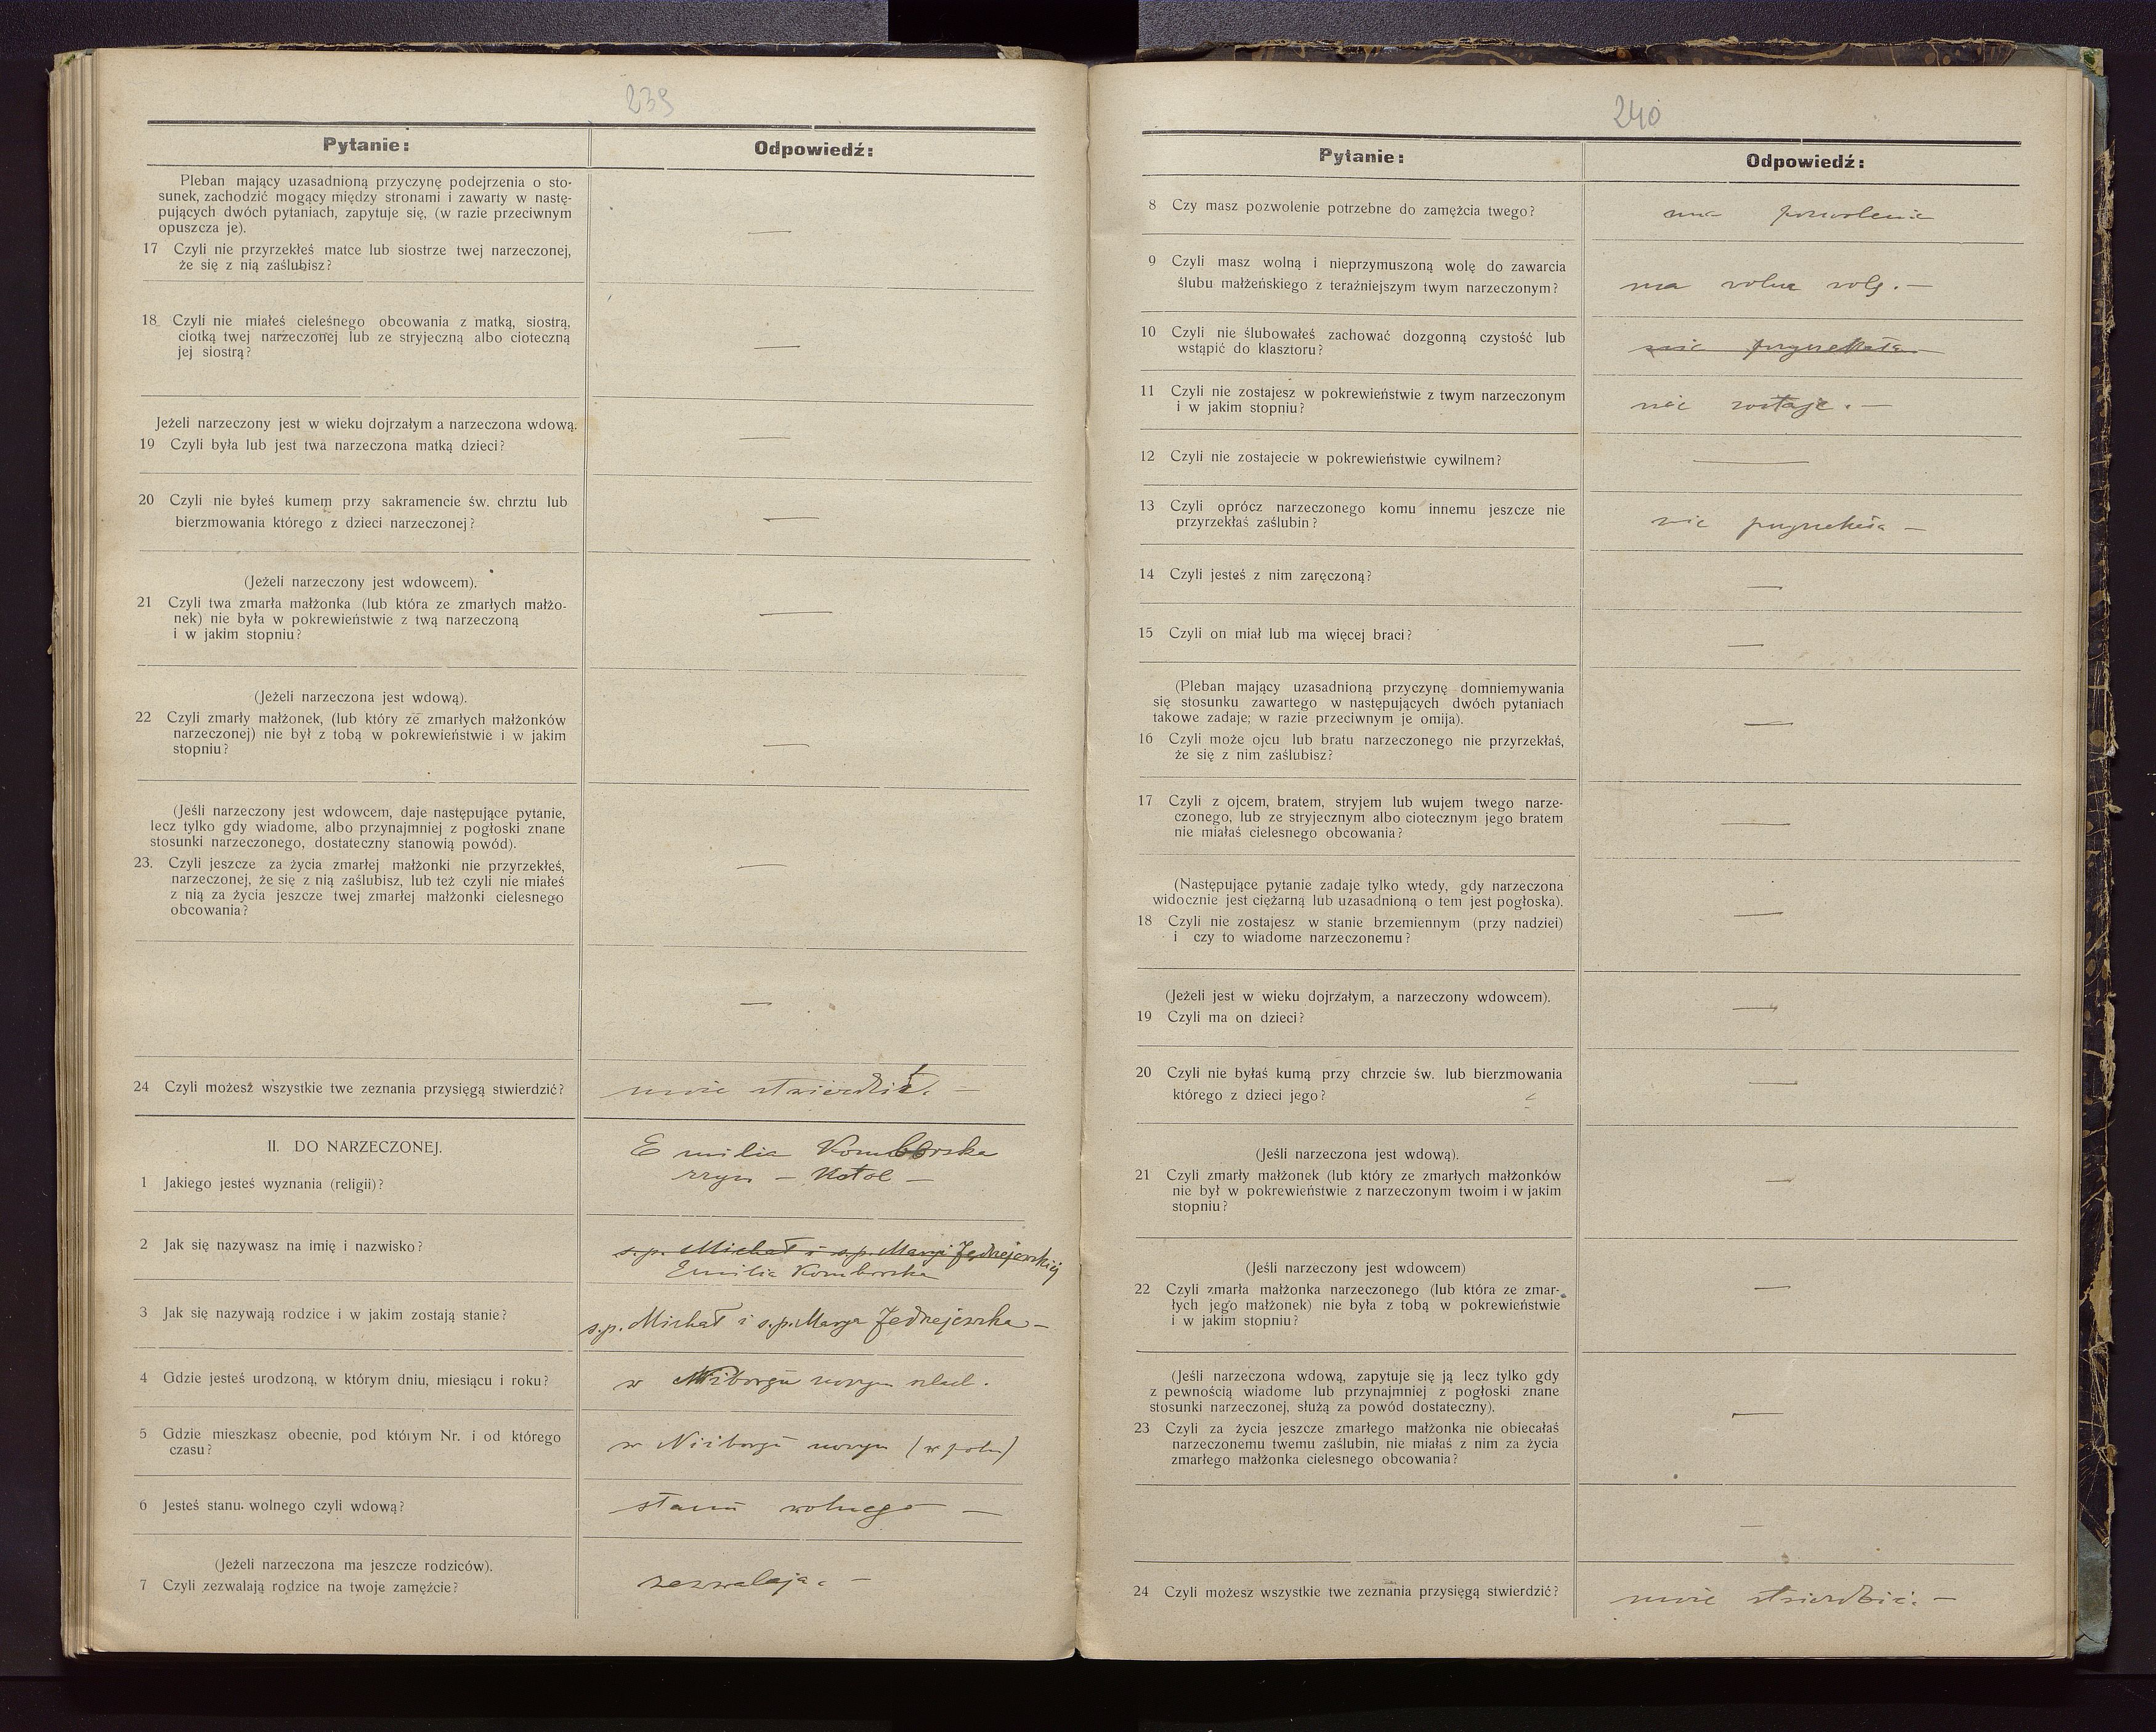 239
Pytanie:
Odpowiedź:
Pleban mający uzasadnioną przyczynę podejrzenia o sto-
sunek, zachodzić mogący między stronami i zawarty w nastę-
pujących dwóch pytaniach, zapytuje się, (w razie przeciwnym
opuszcza je).
—
17 Czyli nie przyrzekłeś matce lub siostrze twej narzeczonej,
że się z nią zaślubisz?
18 Czyli nie miałeś cieleśnego obcowania z matką, siostrą,
ciotką twej narzeczonej lub ze stryjeczną albo cioteczną
jej siostrą?
—
Jeżeli narzeczony jest w wieku dojrzałym a narzeczona wdową.
19 Czyli była lub jest twa narzeczona matką dzieci?
—
20 Czyli nie byłeś kumem przy sakramencie św. chrztu lub
bierzmowania którego z dzieci narzeczonej?
—
(Jeżeli narzeczony jest wdowcem).
21 Czyli twa zmarła małżonka (lub która ze zmarłych małżo-
nek) nie była w pokrewieństwie z twą narzeczoną
i w jakim stopniu?
—
(Jeżeli narzeczona jest wdową).
22 Czyli zmarły małżonek, (lub który ze zmarłych małżonków
narzeczonej) nie był z tobą w pokrewieństwie i w jakim
stopniu?
—
(Jeśli narzeczony jest wdowcem, daje następujące pytanie,
lecz tylko gdy wiadome, albo przynajmniej z pogłoski znane
stosunki narzeczonego, dostateczny stanowią powód).
23. Czyli jeszcze za życia zmarłej małżonki nie przyrzekłeś,
narzeczonej, że się z nią zaślubisz, lub też czyli nie miałeś
z nią za życia jeszcze twej zmarłej małżonki cielesnego
obcowania?
—
—
24 Czyli możesz wszystkie twe zeznania przysięgą stwierdzić?
może stwierdzić. —
II. DO NARZECZONEJ.
Emilia Komborska
1 Jakiego jesteś wyznania (religii)?
rzym — Katol —
2 Jak się nazywasz na imię i nazwisko?
s.p. Michał i s.p. Maryi Jędrejewskiej
Emilia Komborska
3 Jak się nazywają rodzice i w jakim zostają stanie?
s.p. Michał i s.p. Marya Jedrejewska —
4 Gdzie jesteś urodzoną, w którym dniu, miesiącu i roku?
w Niżborgu nowym
5 Gdzie mieszkasz obecnie, pod którym Nr. i od którego
czasu?
w Niżborgu nowym (w polu)
6 Jesteś stanu wolnego czyli wdową?
stanu wolnego —
(Jeżeli narzeczona ma jeszcze rodziców).
7 Czyli zezwalają rodzice na twoje zamęźcie?
zezwalają. —
240
Pytanie:
Odpowiedź:
8 Czy masz pozwolenie potrzebne do zamężcia twego?
ma pozwolenie
9 Czyli masz wolną i nieprzymuszoną wolę do zawarcia
ślubu małżeńskiego z teraźniejszym twym narzeczonym?
ma wolną wolę. —
10 Czyli nie ślubowałeś zachować dozgonną czystość lub
wstąpić do klasztoru?
nie przyrzekała
11 Czyli nie zostajesz w pokrewieństwie z twym narzeczonym
i w jakim stopniu?
nie zostaje. —
12 Czyli nie zostajecie w pokrewieństwie cywilnem?
—
13 Czyli oprócz narzeczonego komu innemu jeszcze nie
przyrzekłaś zaślubin?
nie przyrzekła —
14 Czyli jesteś z nim zaręczoną?
—
15 Czyli on miał lub ma więcej braci?
—
(Pleban mający uzasadnioną przyczynę domniemywania
się stosunku zawartego w następujących dwóch pytaniach
takowe zadaje; w razie przeciwnym je omija).
—
16 Czyli może ojcu lub bratu narzeczonego nie przyrzekłaś,
że się z nim zaślubisz?
17 Czyli z ojcem, bratem, stryjem lub wujem twego narze-
czonego, lub ze stryjecznym albo ciotecznym jego bratem
nie miałaś cielesnego obcowania?
—
(Następujące pytanie zadaje tylko wtedy, gdy narzeczona
widocznie jest ciężarną lub uzasadnioną o tem jest pogłoska).
18 Czyli nie zostajesz w stanie brzemiennym (przy nadziei)
i czy to wiadome narzeczonemu?
—
(Jeżeli jest w wieku dojrzałym, a narzeczony wdowcem).
19 Czyli ma on dzieci?
—
20 Czyli nie byłaś kumą przy chrzcie św. lub bierzmowania
którego z dzieci jego?
—
(Jeśli narzeczona jest wdową).
21 Czyli zmarły małżonek (lub który ze zmarłych małżonków
nie był w pokrewieństwie z narzeczonym twoim i w jakim
stopniu?
—
(Jeśli narzeczony jest wdowcem)
22 Czyli zmarła małżonka narzeczonego (lub która ze zmar-
łych jego małżonek) nie była z tobą w pokrewieństwie
i w jakim stopniu?
—
(Jeśli narzeczona wdową, zapytuje się ją lecz tylko gdy
z pewnością wiadome lub przynajmniej z pogłoski znane
stosunki narzeczonej, służą za powód dostateczny).
—
23 Czyli za życia jeszcze zmarłego małżonka nie obiecałaś
narzeczonemu twemu zaślubin, nie miałaś z nim za życia
zmarłego małżonka cielesnego obcowania?
—
24 Czyli możesz wszystkie twe zeznania przysięgą stwierdzić?
może stwierdzić. —